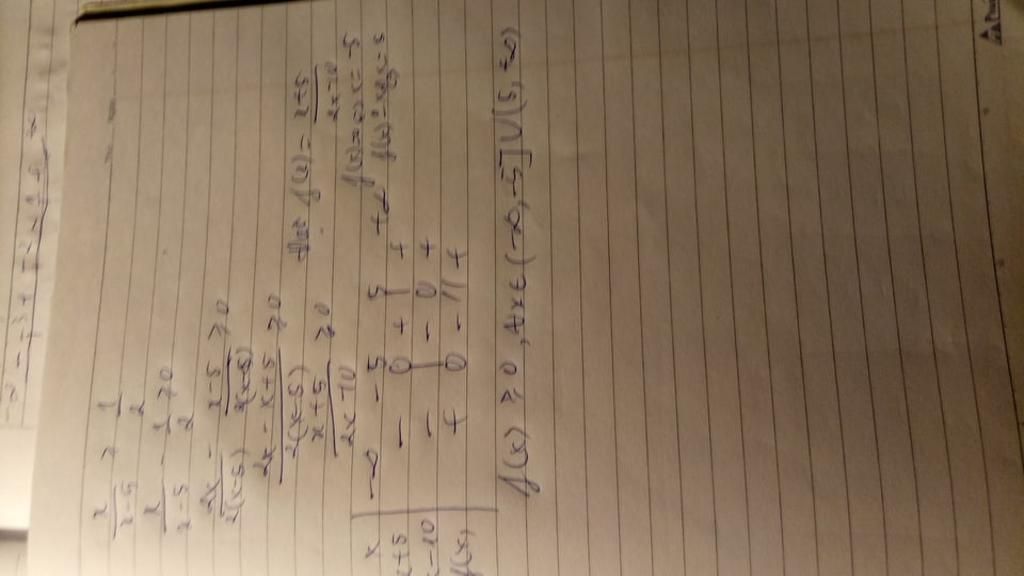 x/(x-5) ≥ 1/2
x/(x-5) - 1/2 ≥ 0
2x/(2(x-5)) - (x-5)/(2(x-5)) ≥ 0
(2x - x+5)/(2(x-5)) ≥ 0
(x+5)/(2x-10) ≥ 0
f(x) = (x+5)/(2x-10)
f(x)=0 => x=-5
x | -∞ -5 5 +∞
x+5 | - 0 + | +
x-10 | - | - 0 +
f(x) | + 0 - || +
f(x) ≥ 0, ∀x∈(-∞,-5]∪(5,+∞)